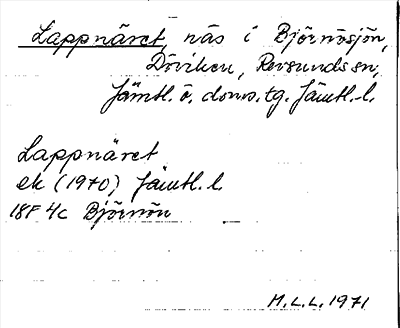 Lappnäret, näs i Björnösjön,
Döviken, Revsunds sn,
Jämtl. ö. doms. tg. Jämtl. l.
Lappnäret
ek (1970) Jämtl. l.
18F 4c Björnön
M.L.L. 1971